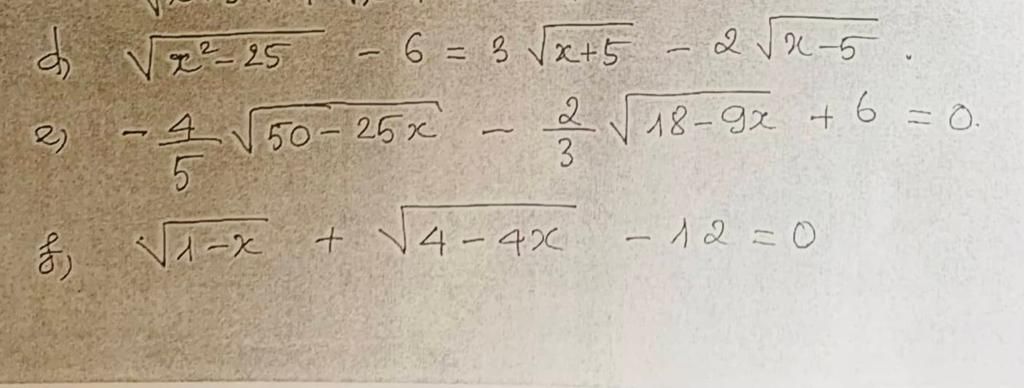 d) √(x²-25) - 6 = 3√(x+5) - 2√(x-5).
e) -4/5 √(50-25x) - 2/3 √(18-9x) + 6 = 0.
f) √(1-x) + √(4-4x) - 12 = 0